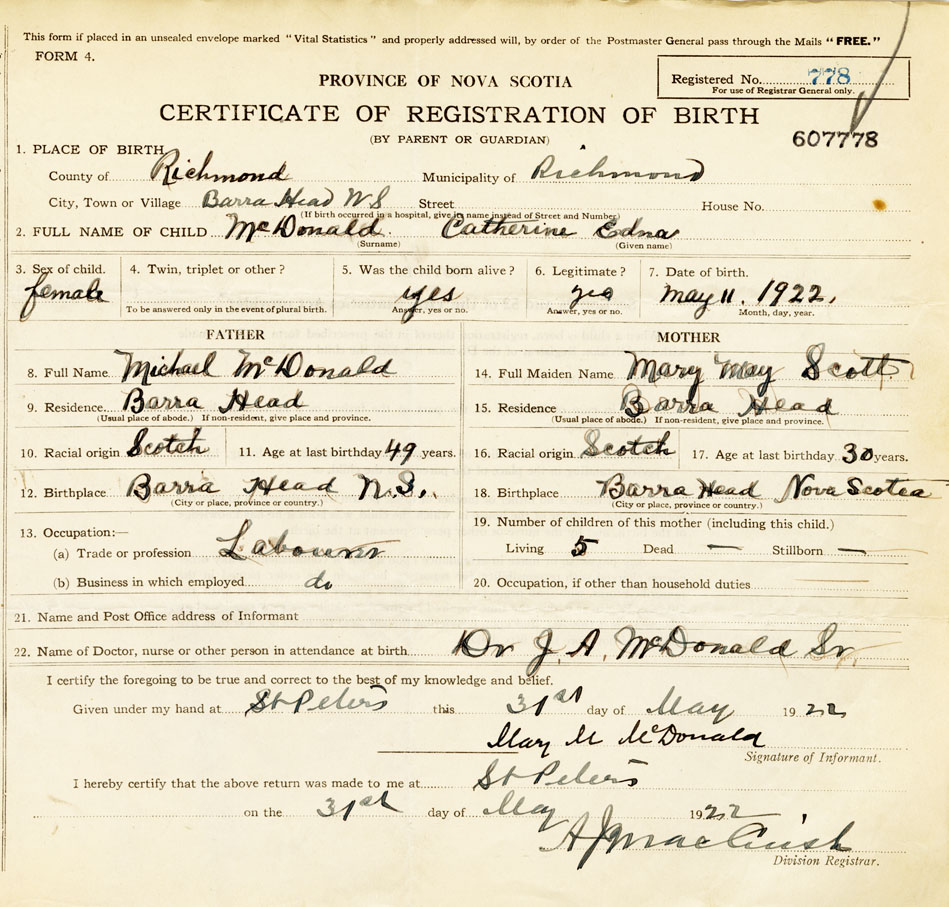 This form if placed in an unsealed envelope marked "Vital Statistics" and properly addressed will, by order of the Postmaster General pass through the Mails "FREE."
FORM 4.
Registered No. 778
For use of Registrar General only.
PROVINCE OF NOVA SCOTIA
CERTIFICATE OF REGISTRATION OF BIRTH
(BY PARENT OR GUARDIAN)
607778
1. PLACE OF BIRTH
County of Richmond Municipality of Richmond
City, Town or Village Barra Head N S Street House No.
(If birth occurred in a hospital, give its name instead of Street and Number)
2. FULL NAME OF CHILD McDonald Catherine Edna
(Surname) (Given name)
3. Sex of child. 4. Twin, triplet or other? 5. Was the child born alive? 6. Legitimate? 7. Date of birth.
female yes yes May 11. 1922.
To be answered only in the event of plural birth. Answer, yes or no. Answer, yes or no. Month, day, year.
FATHER
8. Full Name Michael McDonald
9. Residence Barra Head
(Usual place of abode.) If non-resident, give place and province.
10. Racial origin Scotch 11. Age at last birthday 49 years.
12. Birthplace Barra Head N.S.
(City or place, province or country.)
13. Occupation:—
(a) Trade or profession Labourer
(b) Business in which employed do
MOTHER
14. Full Maiden Name Mary May Scott
15. Residence Barra Head
(Usual place of abode.) If non-resident, give place and province.
16. Racial origin Scotch 17. Age at last birthday 30 years.
18. Birthplace Barra Head Nova Scotea
(City or place, province or country.)
19. Number of children of this mother (including this child.)
Living 5 Dead — Stillborn —
20. Occupation, if other than household duties
21. Name and Post Office address of Informant
22. Name of Doctor, nurse or other person in attendance at birth Dr J. A. McDonald Sr.
I certify the foregoing to be true and correct to the best of my knowledge and belief.
Given under my hand at St Peters this 31st day of May 1922
Mary M McDonald
Signature of Informant.
I hereby certify that the above return was made to me at St Peters
on the 31st day of May 1922
Division Registrar.